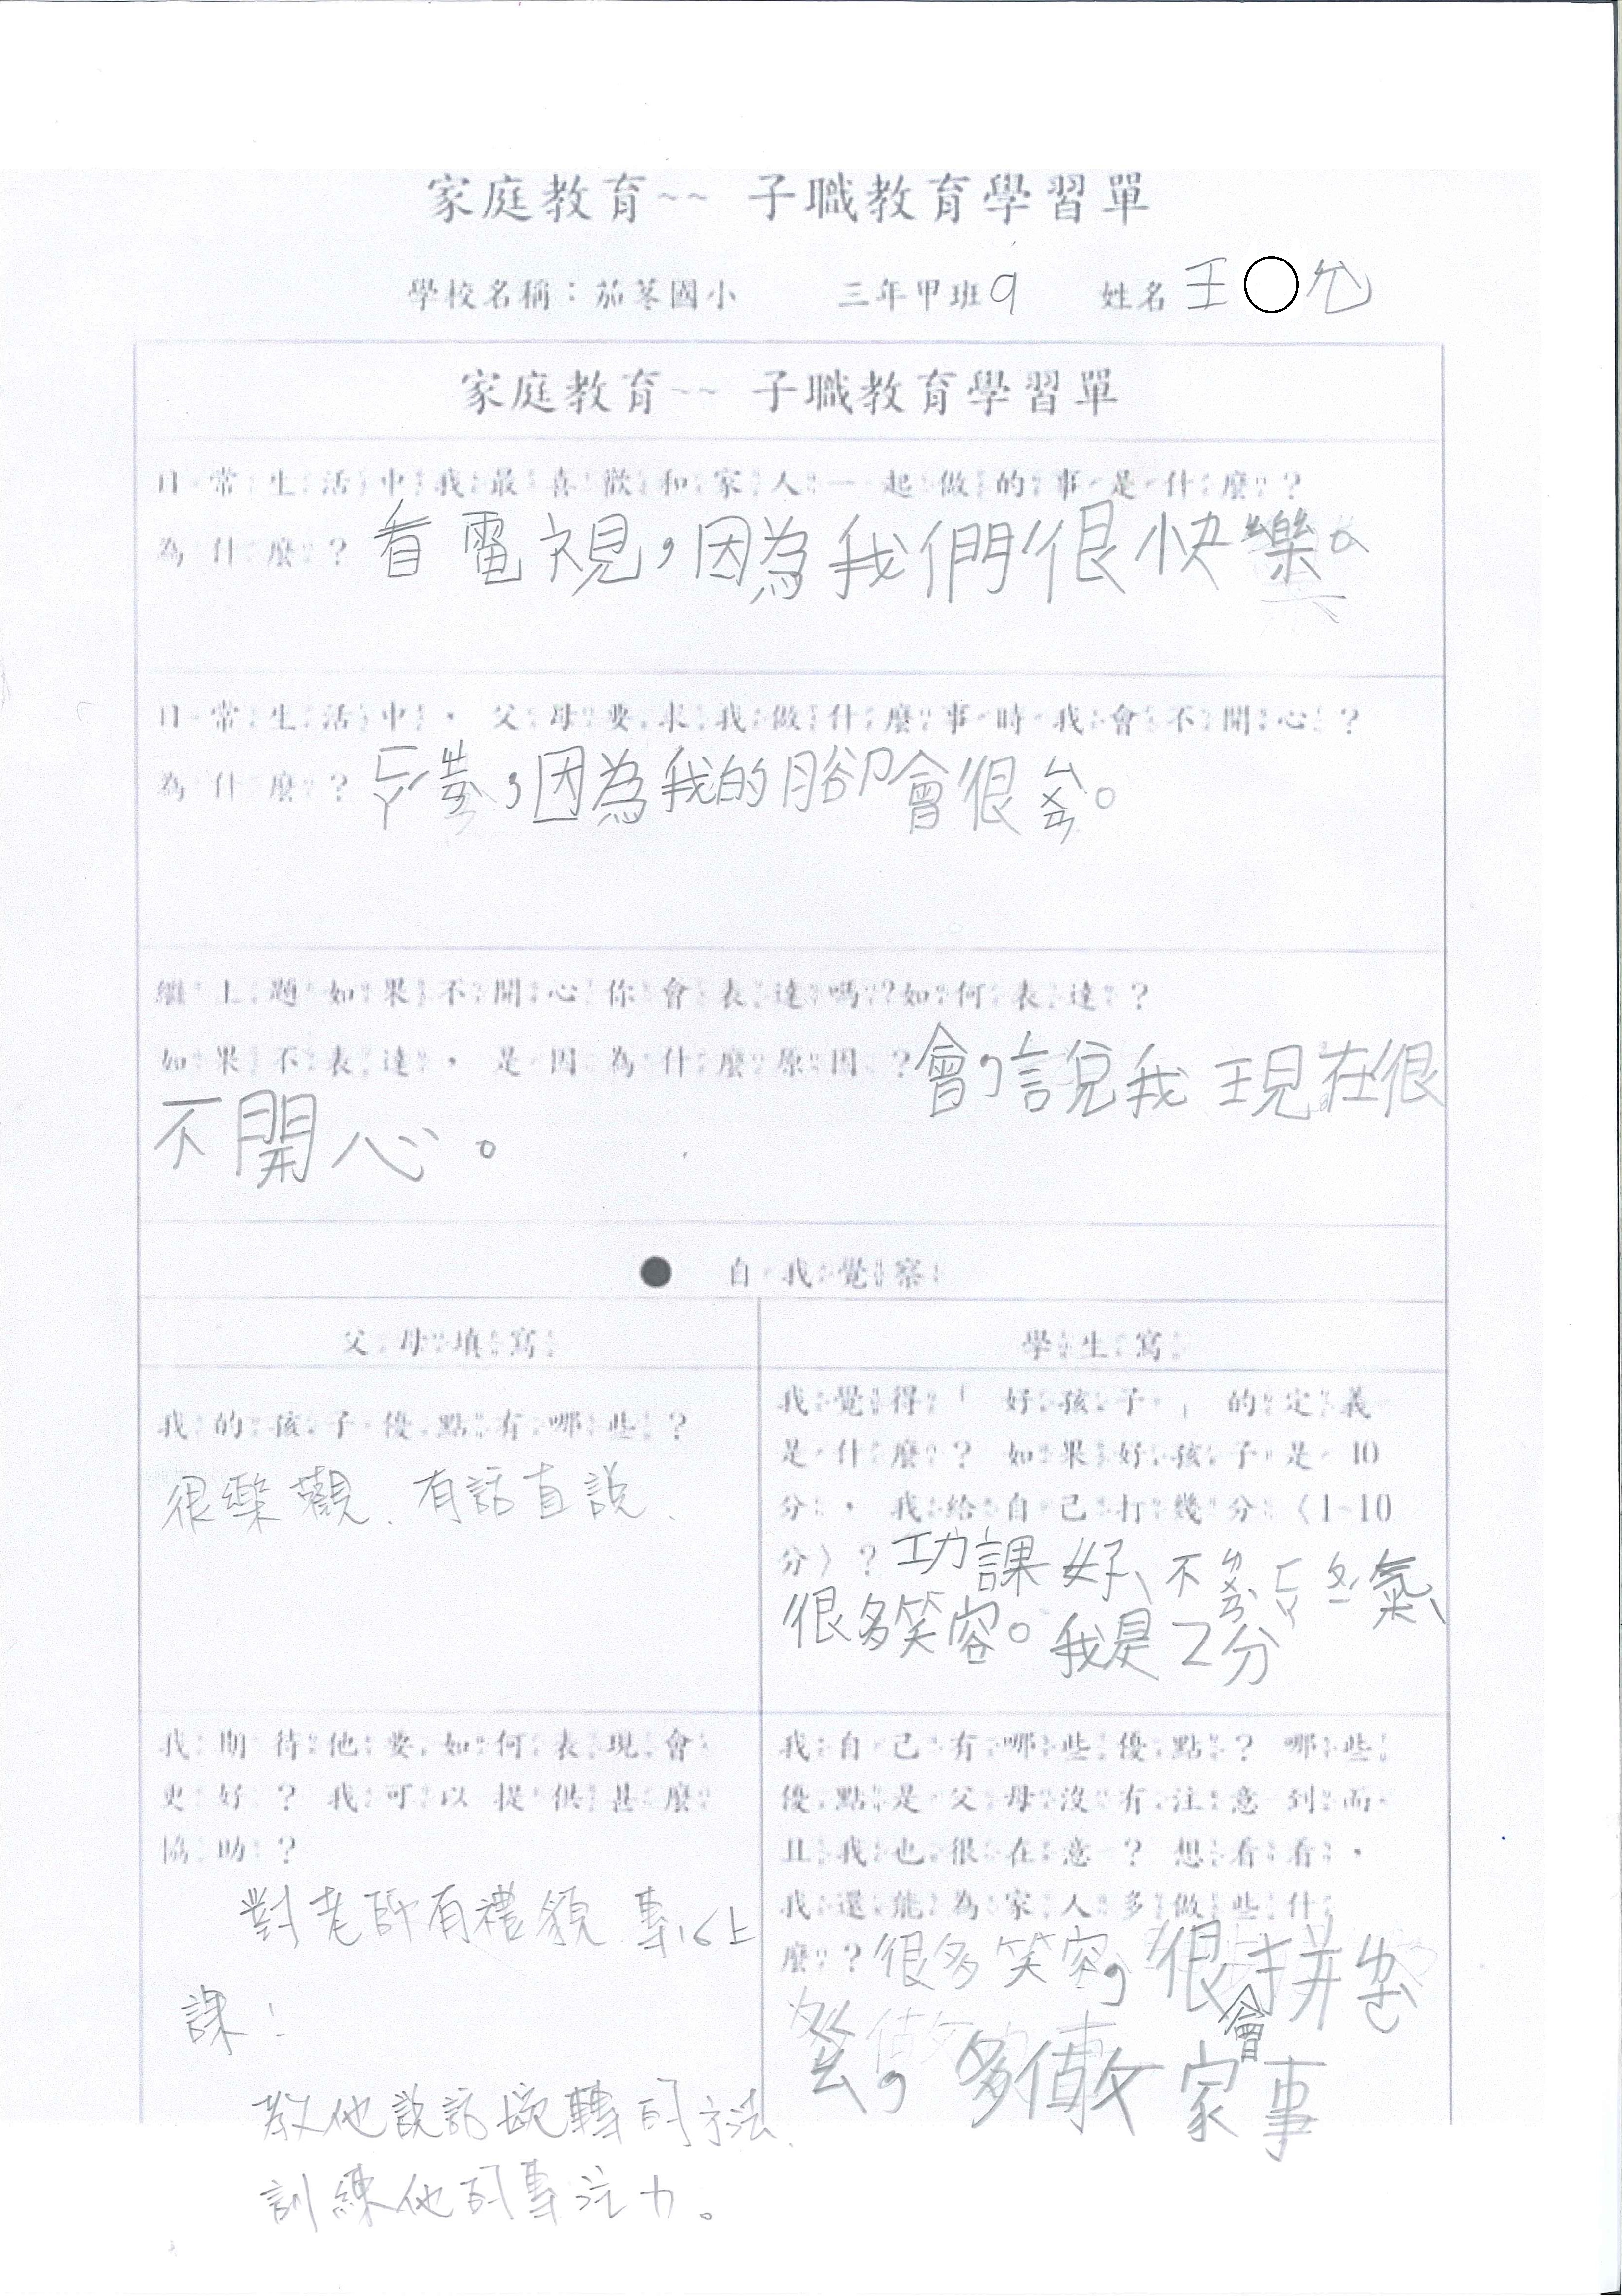 家庭教育~~ 子職教育學習單
學校名稱：茄苳國小 三年甲班9 姓名 王○允
家庭教育~~ 子職教育學習單
日常生活中我最喜歡和家人一起做的事是什麼？
為什麼？看電視，因為我們很快樂。
日常生活中，父母要求我做什麼事時我會不開心？
為什麼？ㄈㄚˊ，因為我的腳會很ㄙㄨㄢ。
繼上題如果不開心你會表達嗎？如何表達？
如果不表達，是因為什麼原因？會，說我現在很
不開心。
● 自我覺察
父母填寫
我的孩子優點有哪些？
很樂觀、有話直說、
我期待他要如何表現會
更好？我可以提供甚麼
協助？
對老師有禮貌、專心上
課！
教他說話婉轉的方法、
訓練他的專注力。
學生寫
我覺得「好孩子」的定義
是什麼？如果好孩子是10
分，我給自己打幾分（1~10
分）？功課好、不ㄌㄨㄢˋㄈㄚ ㄆㄧˊ氣、
很多笑容。我是2分
我自己有哪些優點？哪些
優點是父母沒有注意到而
且我也很在意？想看看，
我還能為家人多做些什
麼？很多笑容，很會拼
多做家事